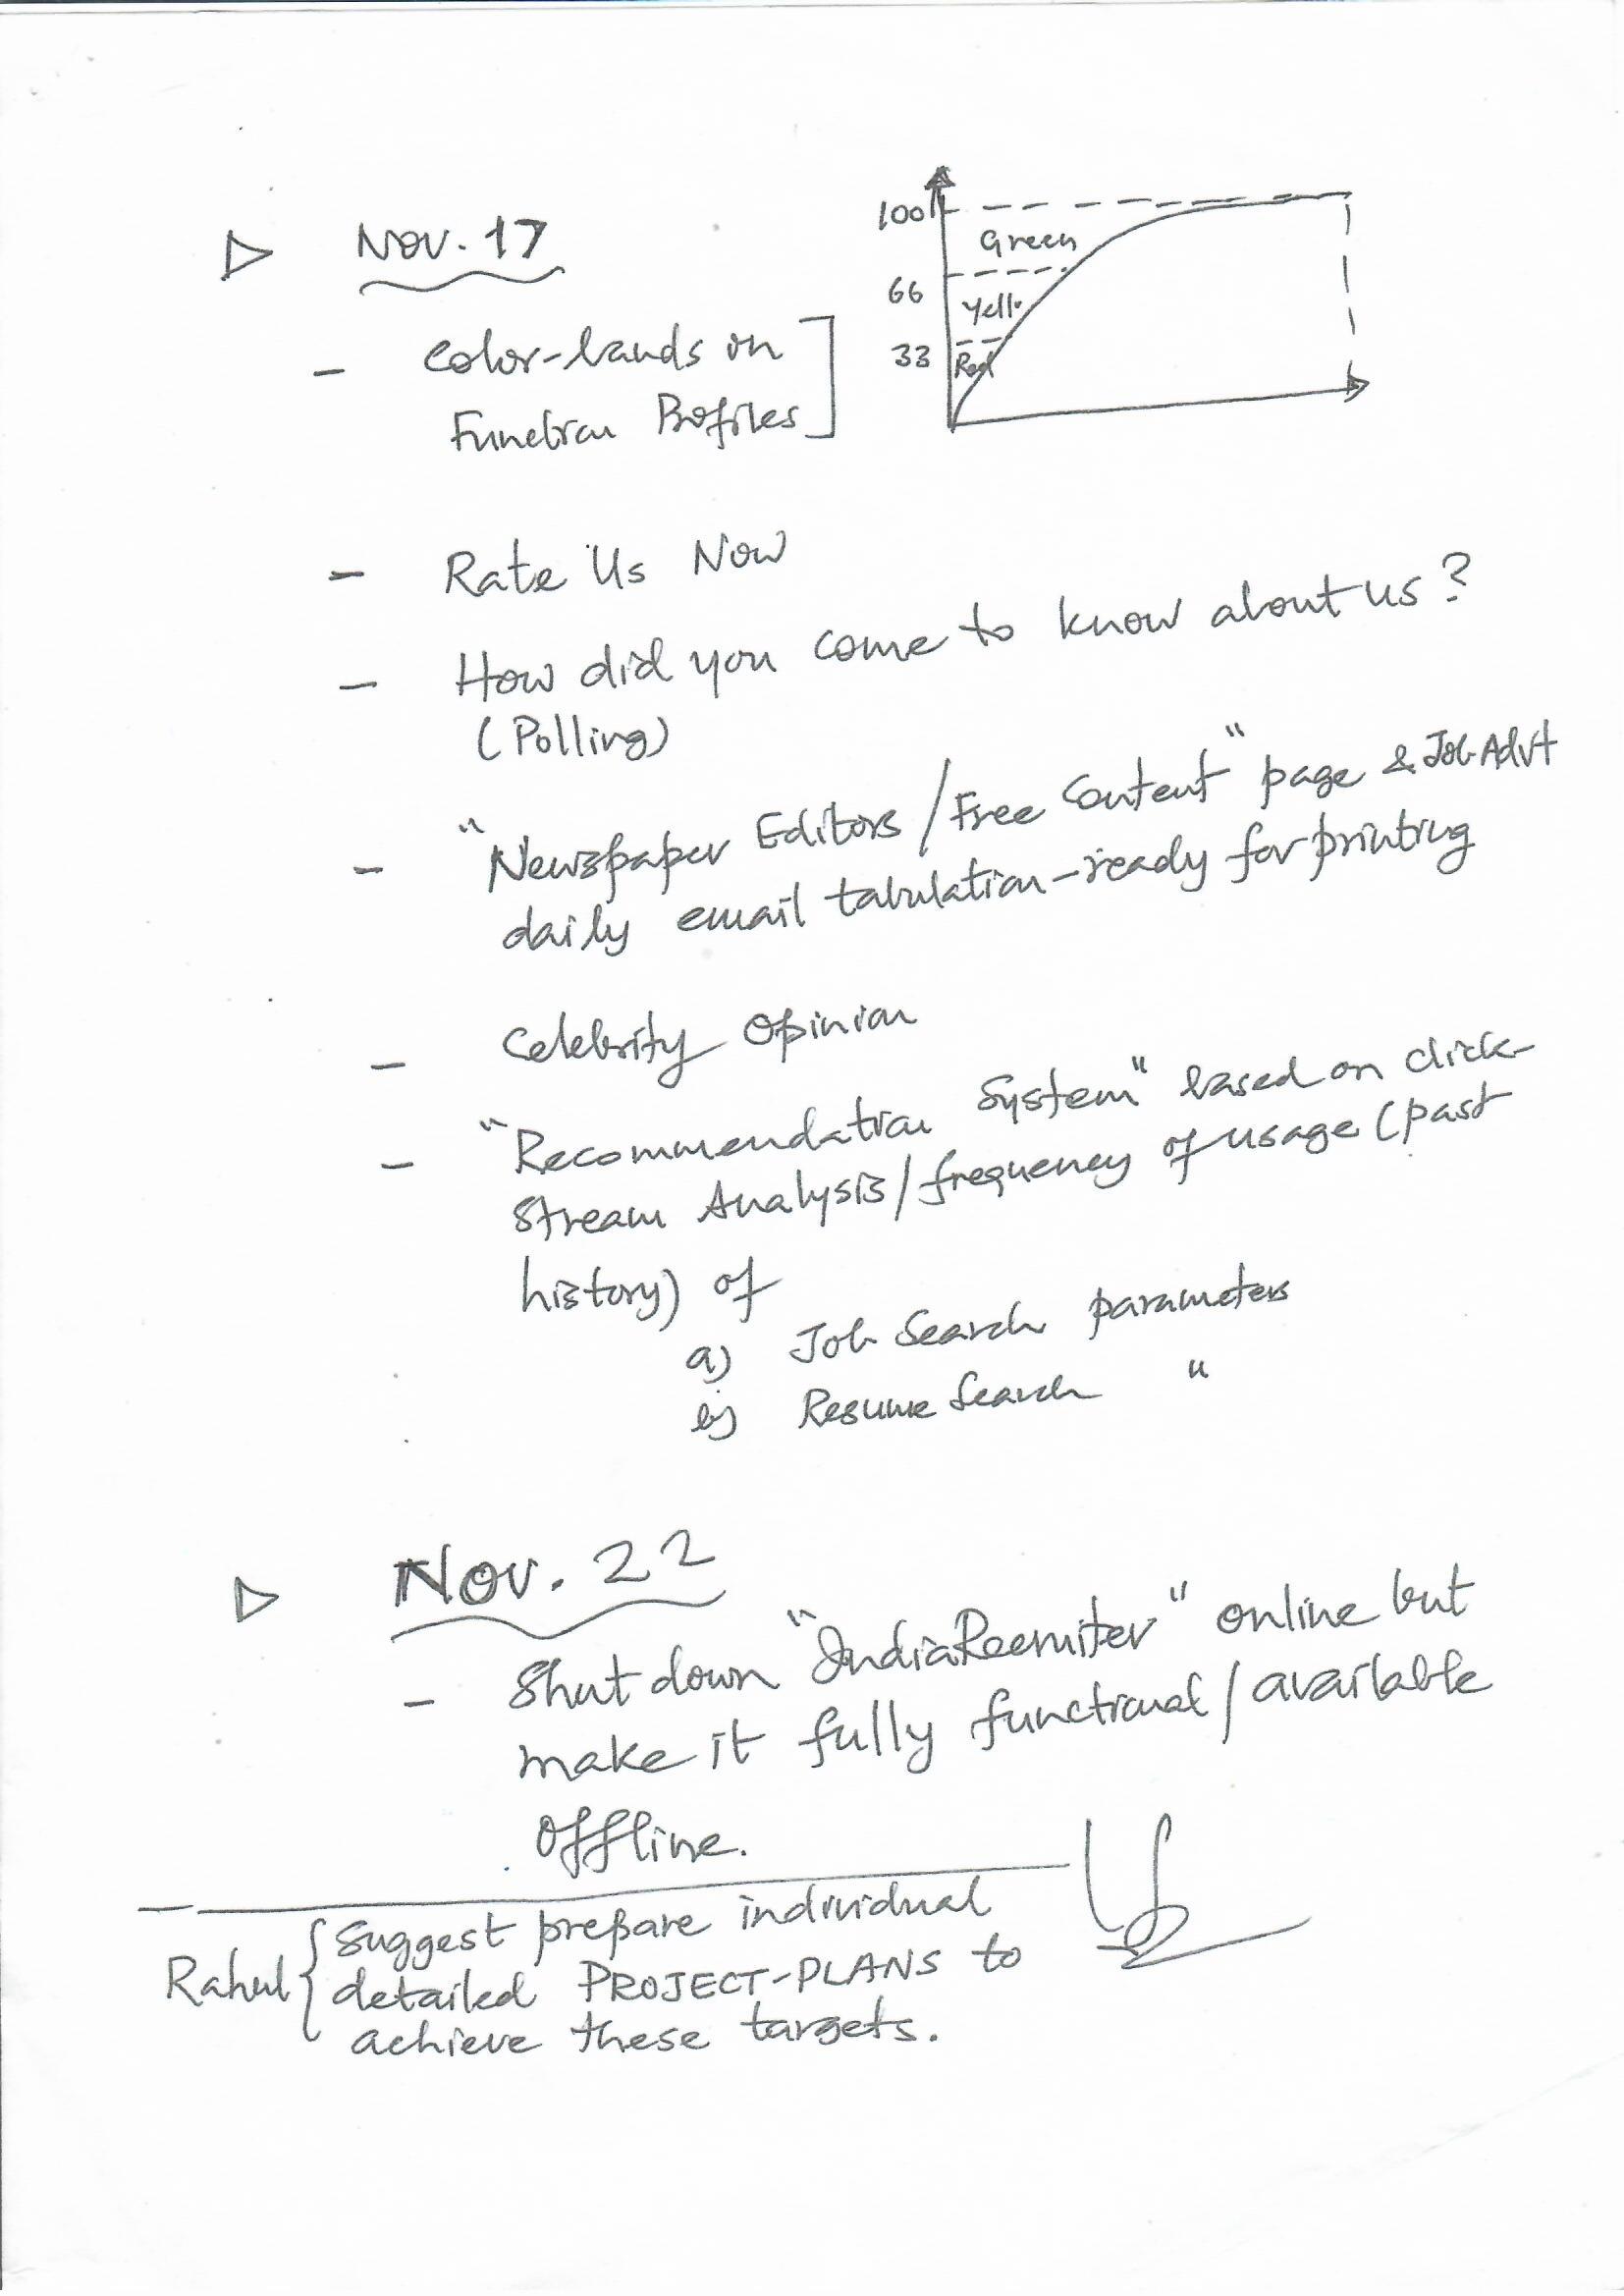 ▷ Nov. 17
- Color-bands on
Function Profiles
100
Green
66
Yell.
33
Red
- Rate Us Now
- How did you come to know about us?
(Polling)
- "Newspaper Editors / Free Content" page & Job Advt
daily email tabulation - ready for printing
- Celebrity Opinion
- "Recommendation System" based on click-
stream Analysis / frequency of usage (past
history) of
a) Job Search parameters
b) Resume Search "
▷ Nov. 22
- Shut down "IndiaRecruiter" online but
make it fully functional / available
offline.
Rahul { Suggest prepare individual
detailed PROJECT-PLANS to
achieve these targets.